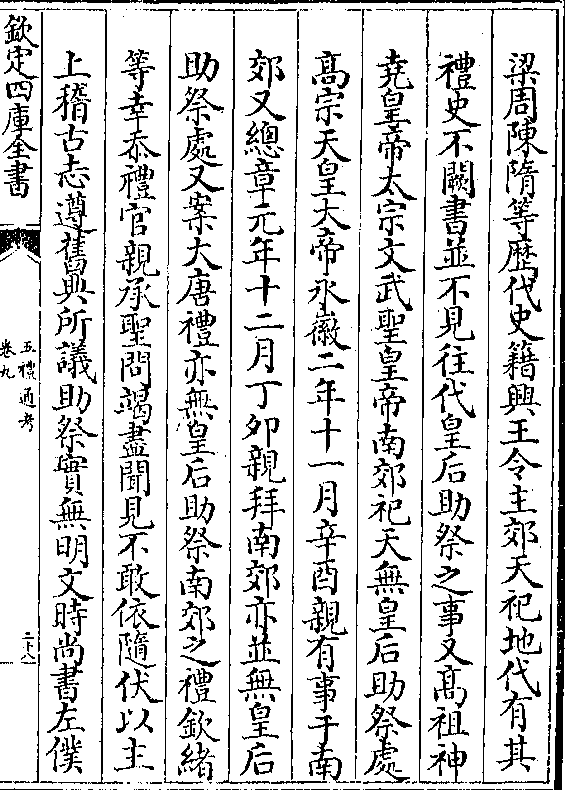 梁周陳隋等歴代史籍興王令主郊天祀地代有其
禮史不闕書並不見往代皇后助祭之事又髙祖神
堯皇帝太宗文武聖皇帝南郊祀天無皇后助祭處
髙宗天皇大帝永徽二年十一月辛酉親有事于南
郊又總章元年十二月丁夘親拜南郊亦並無皇后
助祭處又案大唐禮亦無皇后助祭南郊之禮欽緒
等幸忝禮官親承聖問竭盡聞見不敢依隨伏以主
上稽古志遵舊典所議助祭實無明文時尚書左僕
欽定四庫全書
五禮通考
卷九
二十八